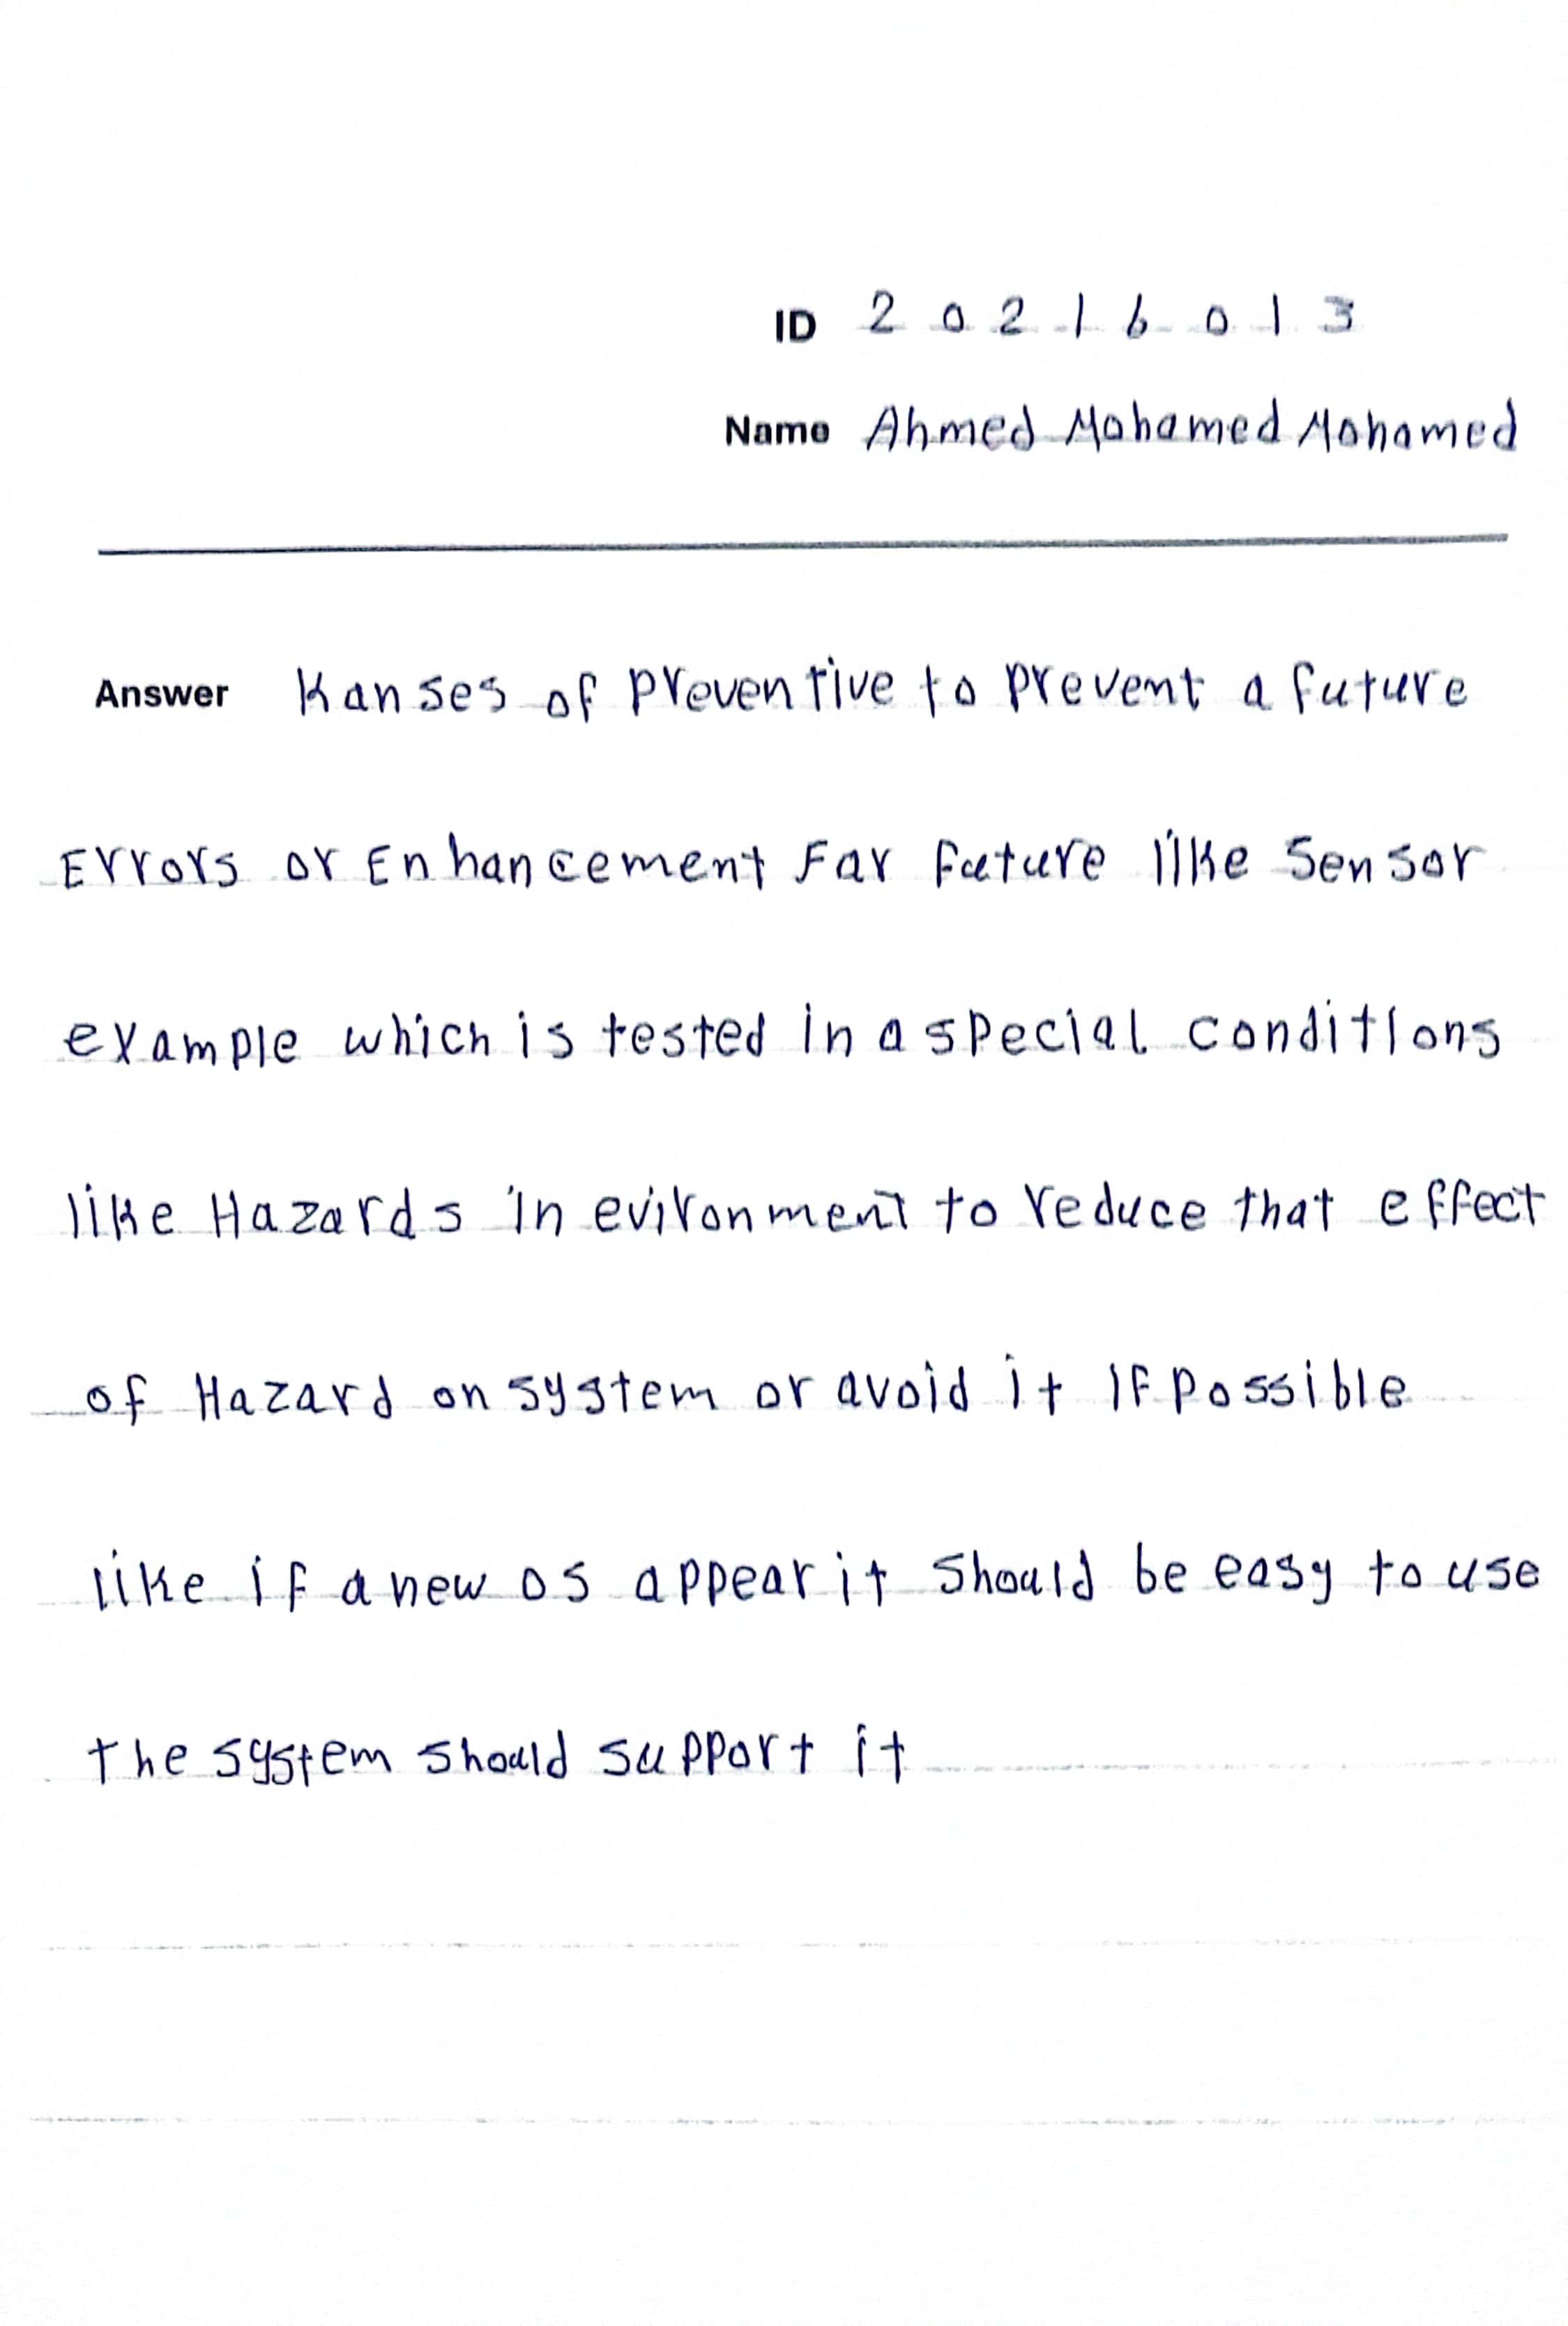 ID 2 0 2 1 6 0 1 3
Name Ahmed Mohamed Mohamed
Answer Kanses of preventive to prevent a future
Errors or Enhancement For future like Sensor
example which is tested in a special conditions
like Hazards in evironment to reduce that effect
of Hazard on system or avoid it if possible
like if a new os appear it should be easy to use
the system should support it